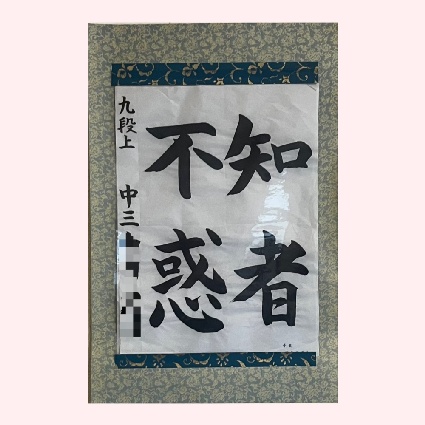 知者
不惑
九段上
中三